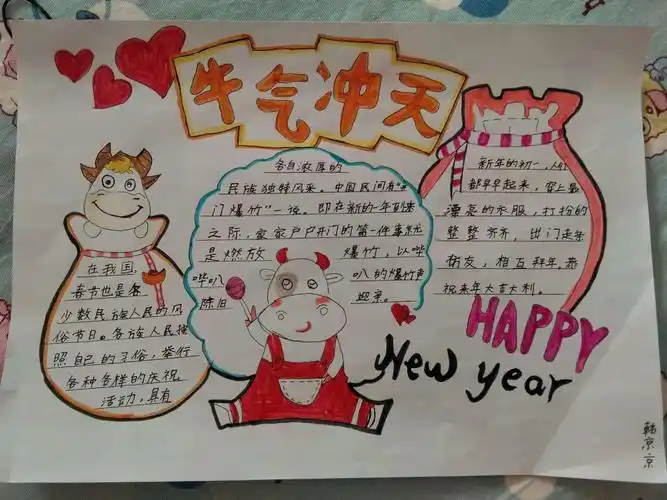 牛气冲天
在我国,
春节也是各
少数民族人民的风
俗节日。各族人民按
照自己的习俗,举行
各种各样的庆祝
活动,具有
各自浓厚的
民族独特风采。中国民间有"开
门爆竹"一说。即在新的一年到来
之际,家家户户开门的第一件事就
是燃放 爆竹,以哔
哔叭 叭的爆竹声
除旧 迎来。
新年的初一,人们
都早早起来,穿上最
漂亮的衣服,打扮的
整整齐齐,出门走亲
访友,相互拜年,恭
祝来年大吉大利。
HAPPY
New year
韩京京